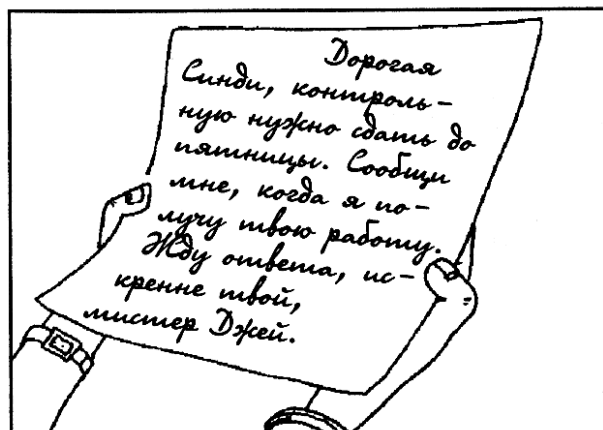 Дорогая
Синди, контроль-
ную нужно сдать до
пятницы. Сообщи
мне, когда я по-
лучу твою работу.
Жду ответа, ис-
кренне твой,
мистер Джей.